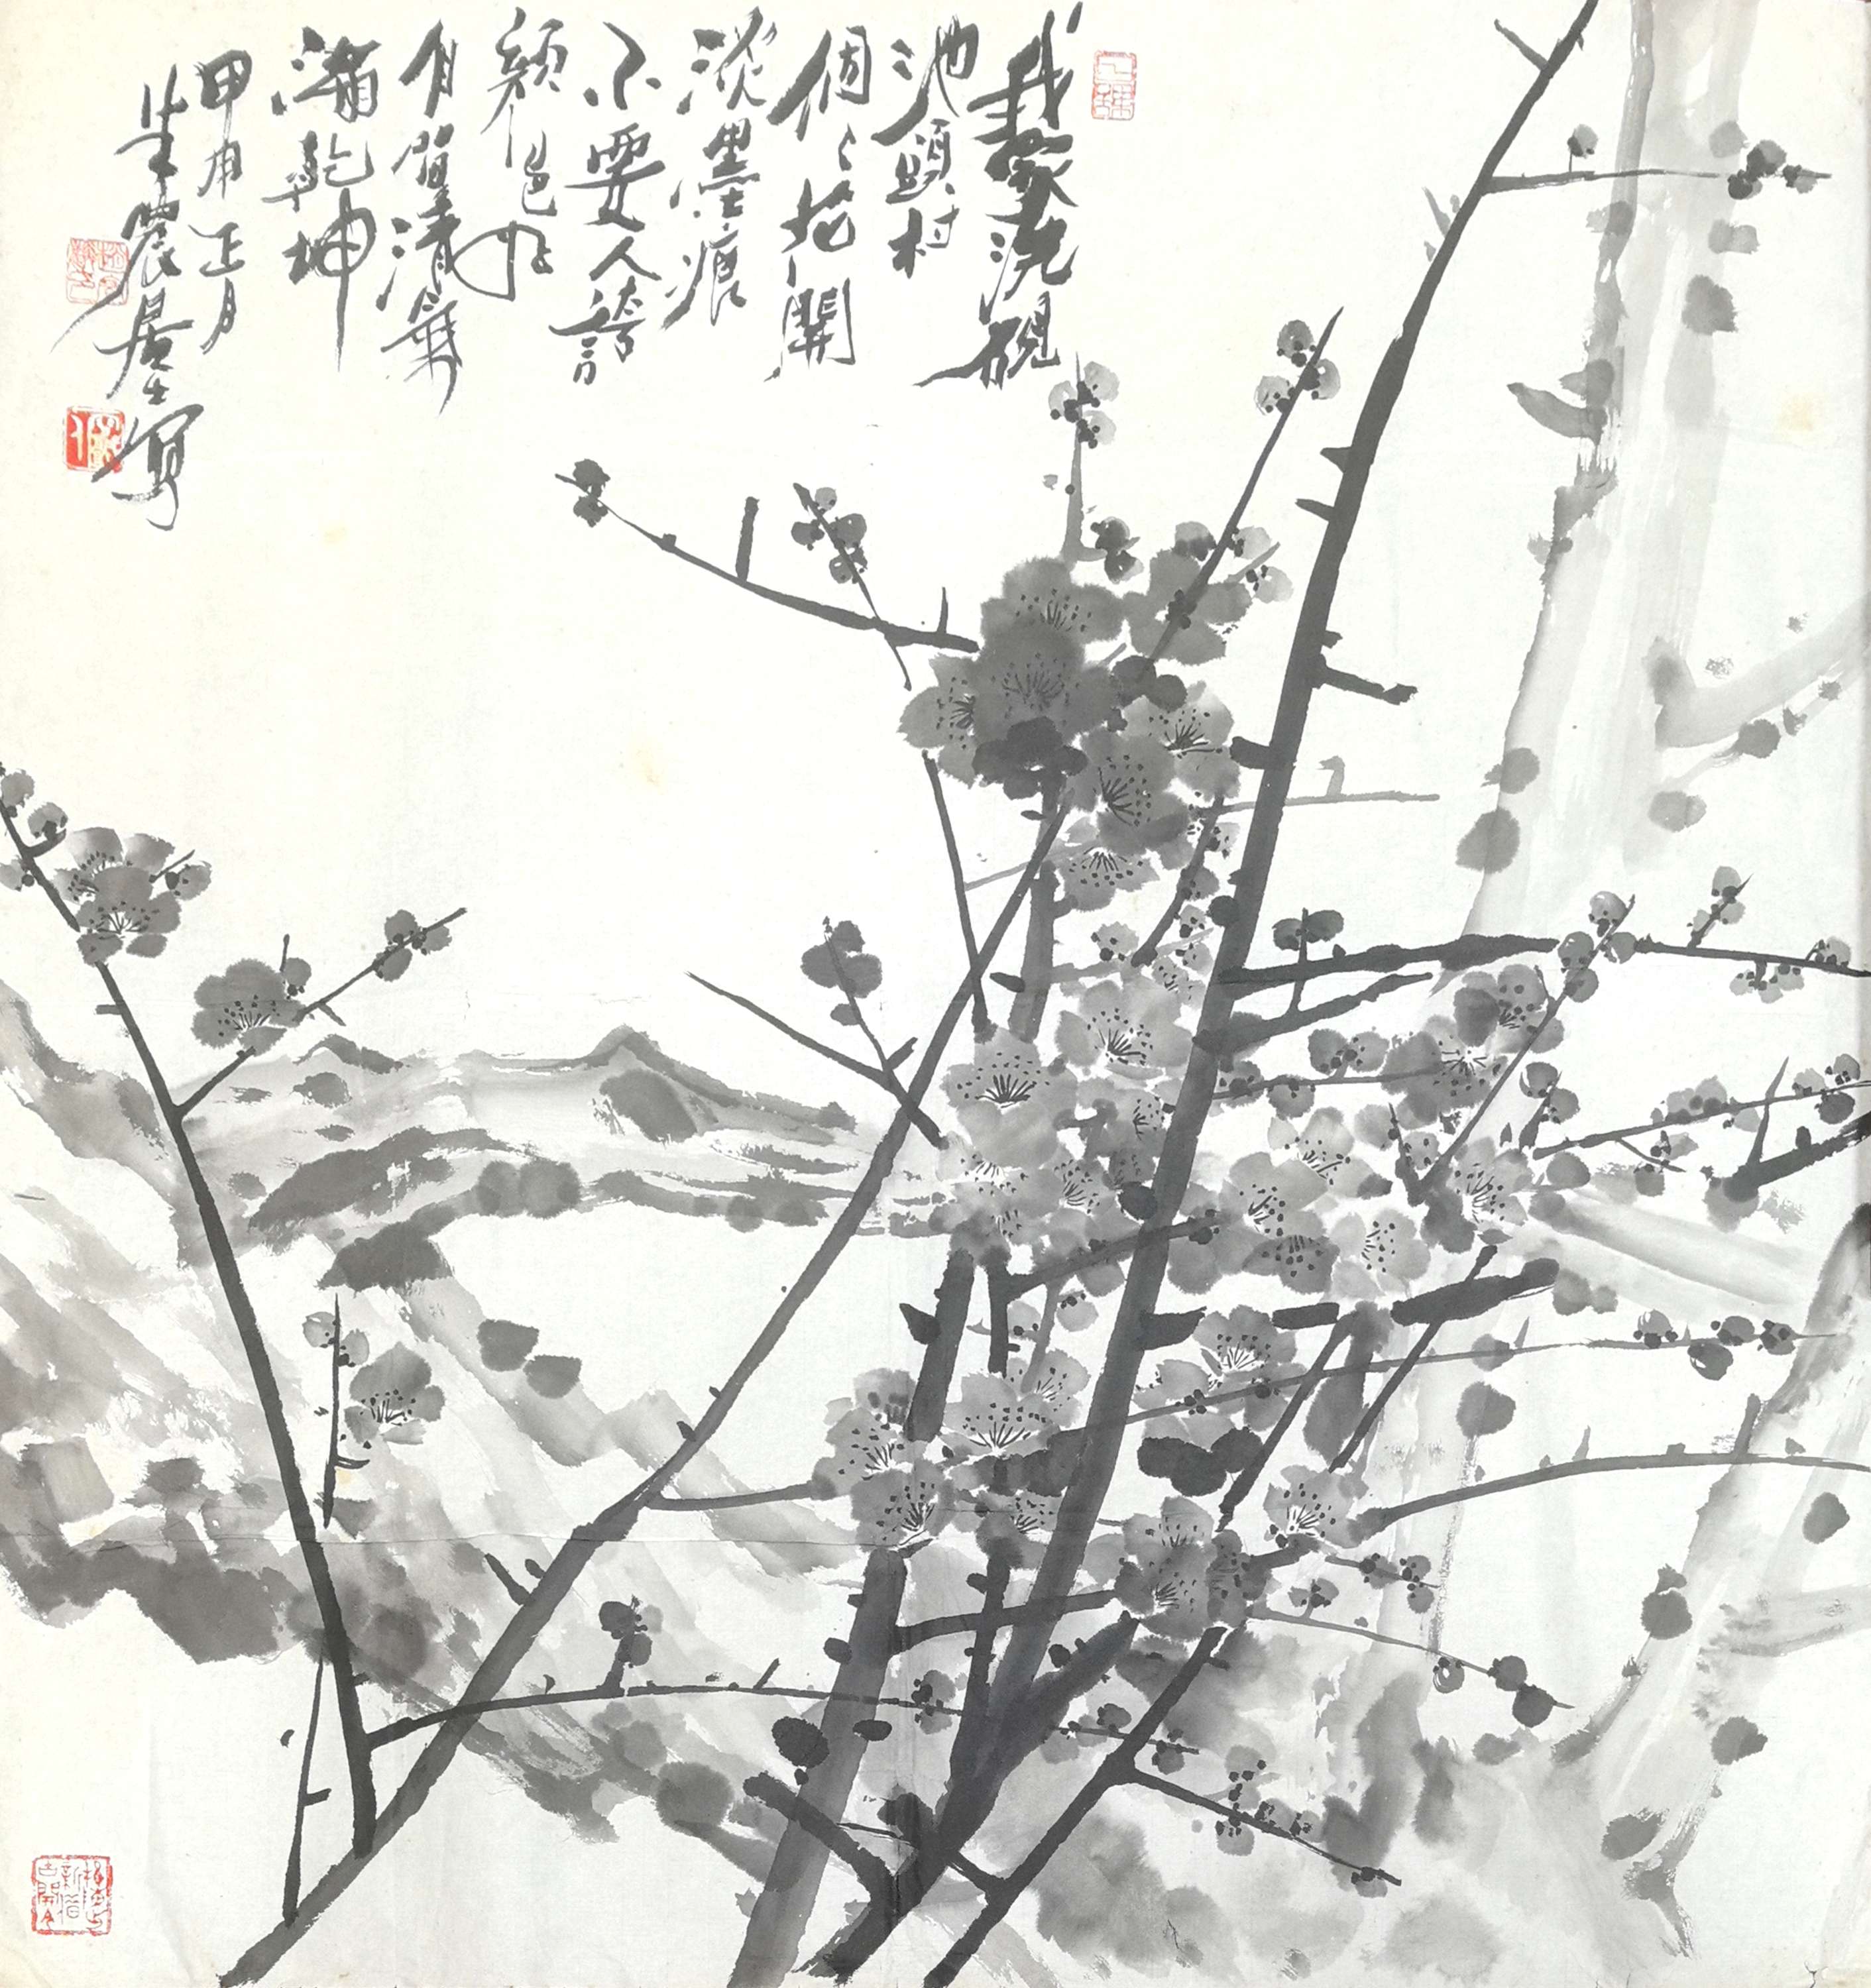 我家洗硯
池頭村
個々花開
淡墨痕
不要人誇
顏色好
留清氣
滿乾坤
甲申正月
農居士寫